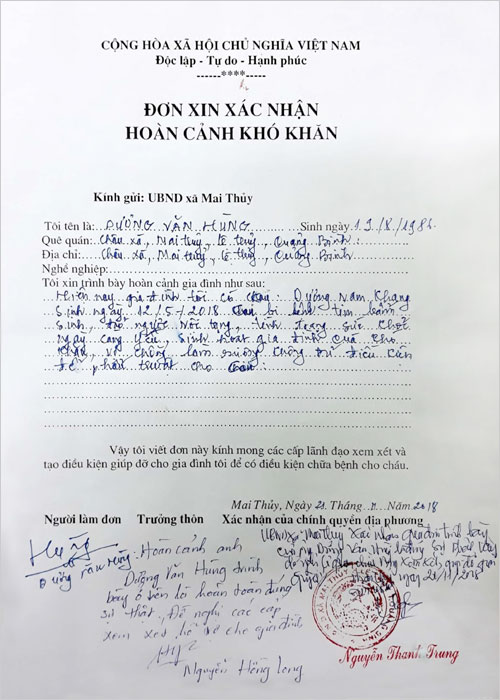 CỘNG HÒA XÃ HỘI CHỦ NGHĨA VIỆT NAM
Độc lập - Tự do - Hạnh phúc
------****-----
ĐƠN XIN XÁC NHẬN
HOÀN CẢNH KHÓ KHĂN
Kính gửi: UBND xã Mai Thủy
Tôi tên là: DƯƠNG VĂN HÙNG Sinh ngày 19/8/1986
Quê quán: Châu xá, Mai thủy, Lệ thủy, Quảng Bình
Địa chỉ: Châu xá, Mai thủy, Lệ thủy, Quảng Bình
Nghề nghiệp:
Tôi xin trình bày hoàn cảnh gia đình như sau:
Hiện nay gia đình tôi có Dương Năm Khang
Sinh ngày 12/5/2018 bị bệnh tim bẩm
Sinh, tình trạng sức khỏe
ngày càng yếu, Sinh hoạt gia đình quá khó
khăn, vợ chồng làm ruộng không đủ điều kiện
để phẫu thuật cho
Vậy tôi viết đơn này kính mong các cấp lãnh đạo xem xét và
tạo điều kiện giúp đỡ cho gia đình tôi để có điều kiện chữa bệnh cho cháu.
Mai Thủy, Ngày 21 Tháng 11 Năm 2018
Người làm đơn Trưởng thôn Xác nhận của chính quyền địa phương
UBND xã Mai thủy Xác nhận
Hùng Hoàn cảnh anh
Dương Văn Hùng
Dương Văn Hùng trình
bày ở trên là hoàn toàn đúng
sự thật, Đề nghị các cấp
xem xét hỗ trợ cho gia đình
ngày 21/11/2018
Nguyễn Hồng Long
Nguyễn Thanh Trung